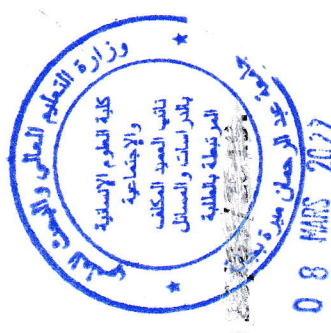 وزارة التعليم العالي والبحث العلمي
كلية العلوم الإنسانية
والاجتماعية
نائب العميد المكلف
بالدراسات والمسائل
المرتبطة بالطلبة
جامعة عبد الرحمان ميرة
0 8 MARS 2022